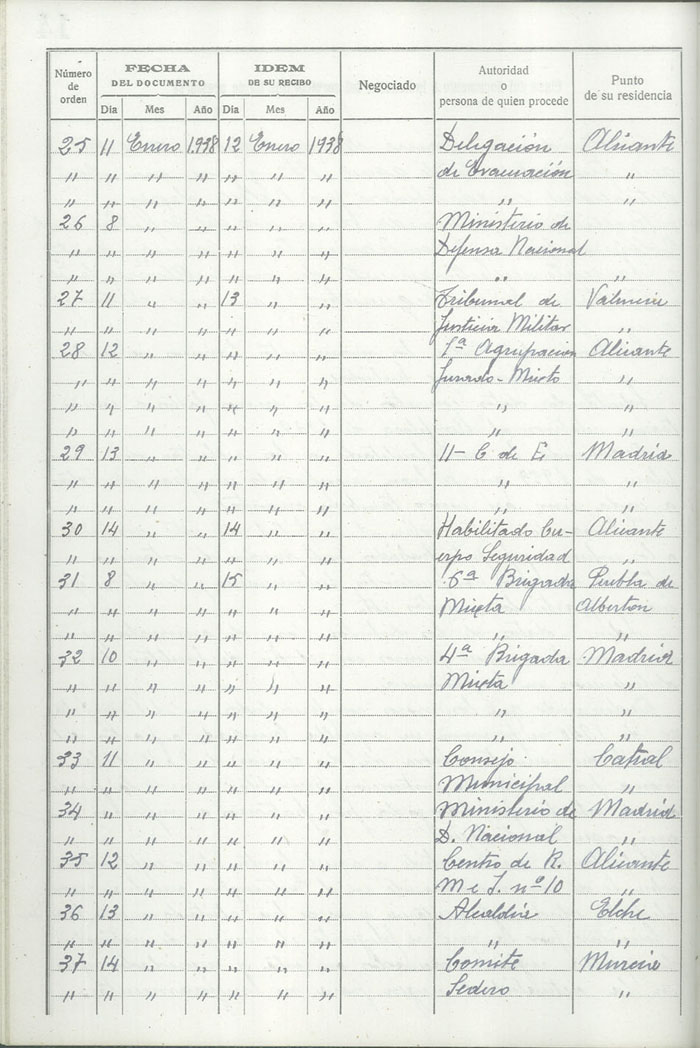 Número de orden | FECHA DEL DOCUMENTO | IDEM DE SU RECIBO | Negociado | Autoridad o persona de quien procede | Punto de su residencia
Dia | Mes | Año | Dia | Mes | Año
25 11 Enero 1.938 12 Enero 1938 Delegación Alicante
" " " " " " " de Evacuación "
" " " " " " " " "
26 8 " " " " " Ministerio de
" " " " " " " Defensa Nacional
" " " " " " " " "
27 11 " " 13 " " Tribunal de Valencia
" " " " " " " Justicia Militar "
28 12 " " " " " 1ª Agrupacion Alicante
" " " " " " " Jurado-Mixto "
" " " " " " " " "
" " " " " " " " "
29 13 " " " " " 11- C de E, Madrid
" " " " " " " " "
" " " " " " " " "
30 14 " " 14 " " Habilitado Cu- Alicante
" " " " " " " erpo Seguridad "
31 8 " " 15 " " Brigada Puebla de
" " " " " " " Mixta Alborton
" " " " " " " "
32 10 " " " " " 4ª Brigada Madrid
" " " " " " " Mixta "
" " " " " " " " "
" " " " " " " " "
33 11 " " " " " Consejo Catral
" " " " " " " Municipal "
34 " " " " " " Ministerio de Madrid
" " " " " " " D. Nacional "
35 12 " " " " " Centro de R. Alicante
" " " " " " " M e I. nº 10 "
36 13 " " " " " Alcaldia Elche
" " " " " " " " "
37 14 " " " " " Comite Murcia
" " " " " " " Sedero "